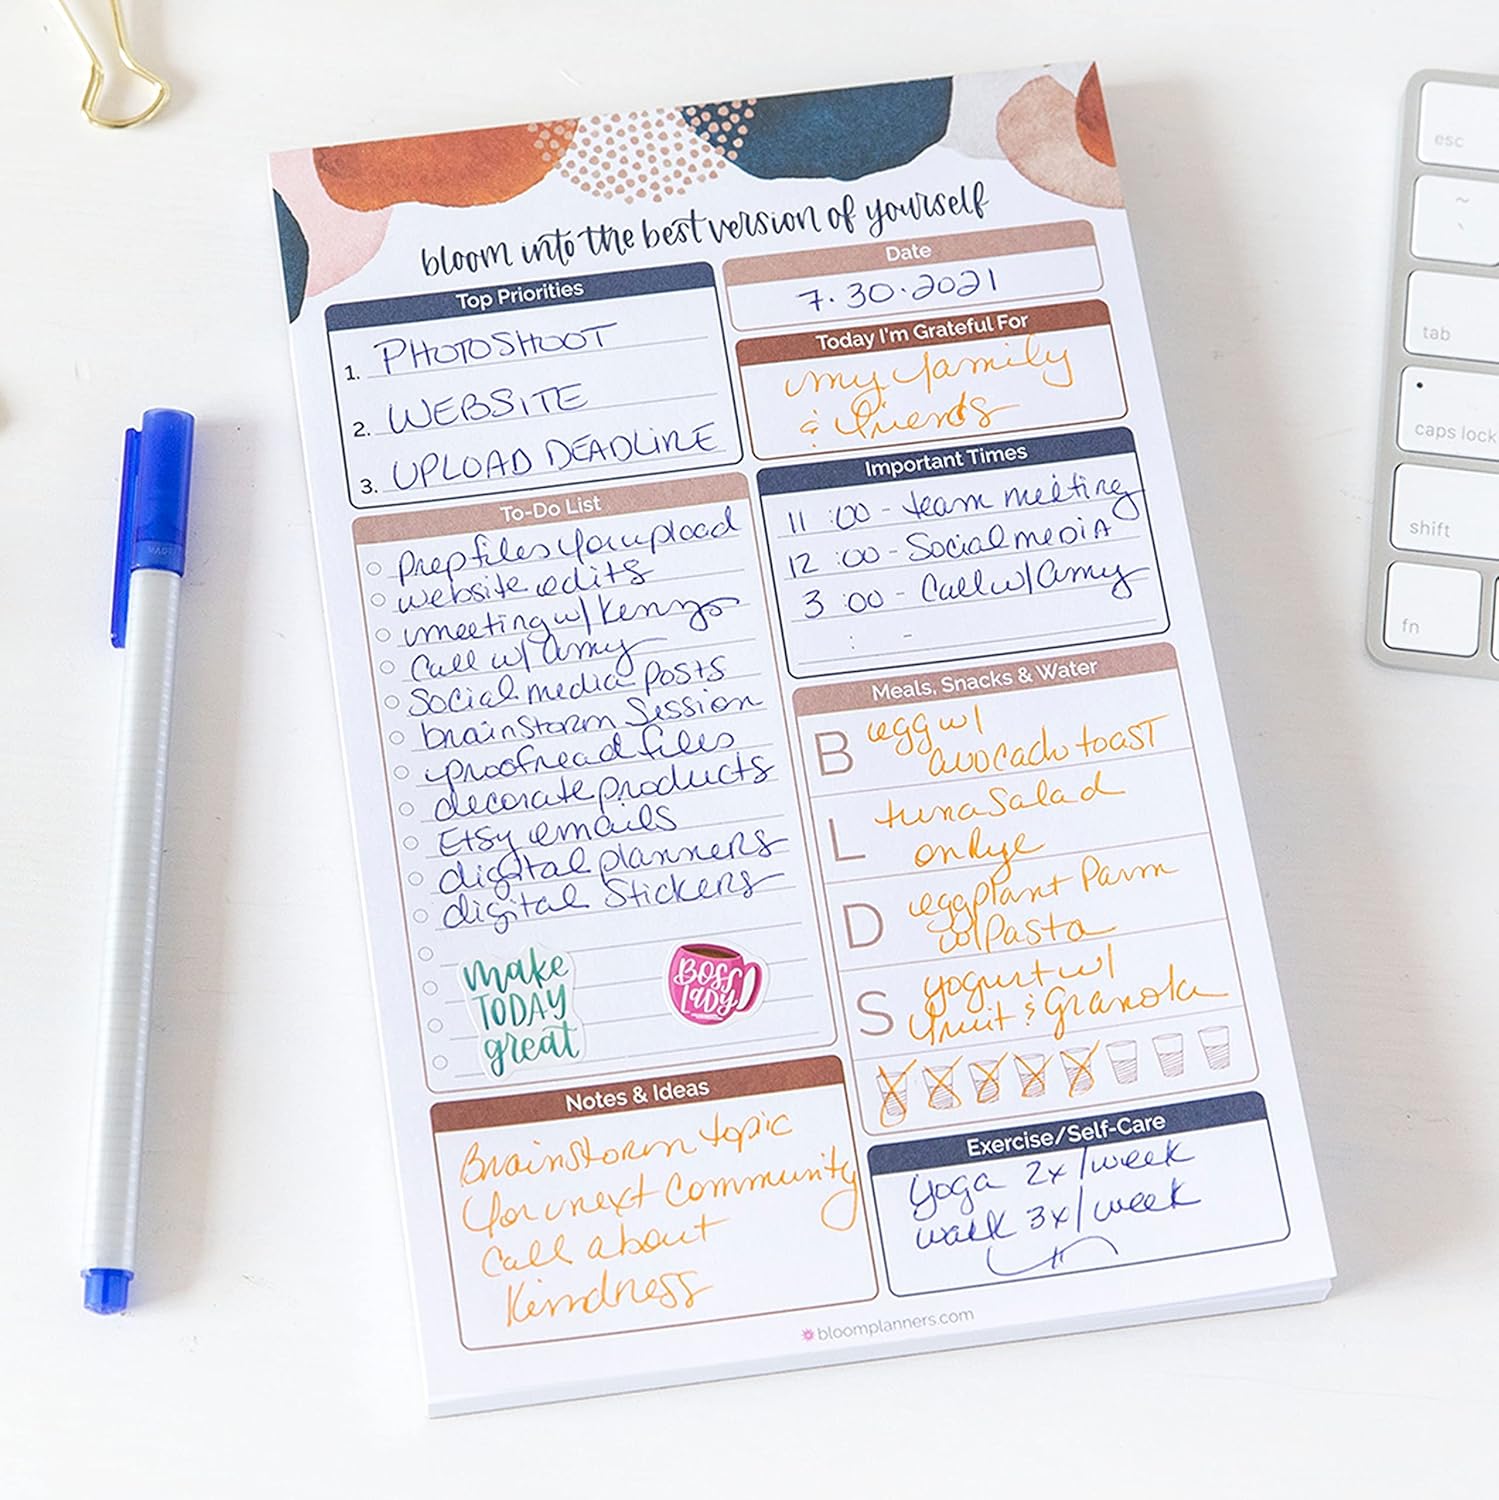 bloom into the best version of yourself
Top Priorities
1. PHOTOSHOOT
2. WEBSITE
3. UPLOAD DEADLINE
Date
7.30.2021
Today I'm Grateful For
my family
& friends
To-Do List
Prep files for upload
website edits
meeting w/ Kenzo
Call w/ Amy
Social media posts
brainstorm Session
proofread files
decorate products
Etsy emails
digital planners
digital Stickers
make
TODAY
great
BOSS
LADY
Important Times
11:00 - team meeting
12:00 - Social media
3:00 - Call w/ Amy
: -
Meals, Snacks & Water
B egg w/
avocado toast
L tuna salad
on Rye
D eggplant Parm
w/ Pasta
S yogurt w/
fruit & Granola
Notes & Ideas
Brainstorm topic
for next Community
Call about
Kindness
Exercise/Self-Care
yoga 2x/week
walk 3x/week
bloomplanners.com
esc
~
`
tab
caps lock
shift
fn